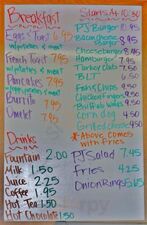 Breakfast
Eggs & Toast 6.95
w/potatoes & meat
French Toast 7.95
w/potatoes & meat
Pancakes 7.95
Burrito 7.95
Omelet 7.95
Drinks
Fountain 2.00
Milk 1.50
Juice 2.25
Coffee 1.95
Hot Tea 1.50
Hot Chocolate 1.50
Starts At 10:30
PJ Burger
Bacon Cheese
Burger 8.95
Cheeseburger
Hamburger 7.95
Turkey Club
BLT
Fish
Chicken Fingers
Buffalo Wings
Corn dog
Grilled Cheese
Above comes
with Fries
PJ Salad 7.45
Fries 4.25
Onion Rings